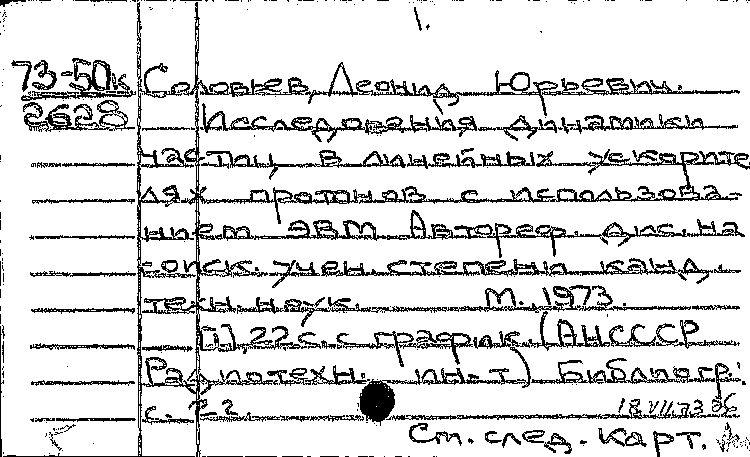 1.
73-50к Соловьев, Леонид Юрьевич.
2628 Исследования динамики
частиц в линейных ускорите
лях протонов с использова-
нием ЭВМ Автореф. дис. на
соиск. учен. степени канд.
техн. наук. М., 1973.
[1], 22 с. с граф.; к. (АН СССР
Радиотехн. ин-т) Библиогр.:
с. 22.
18 VII 73
См. след. карт.